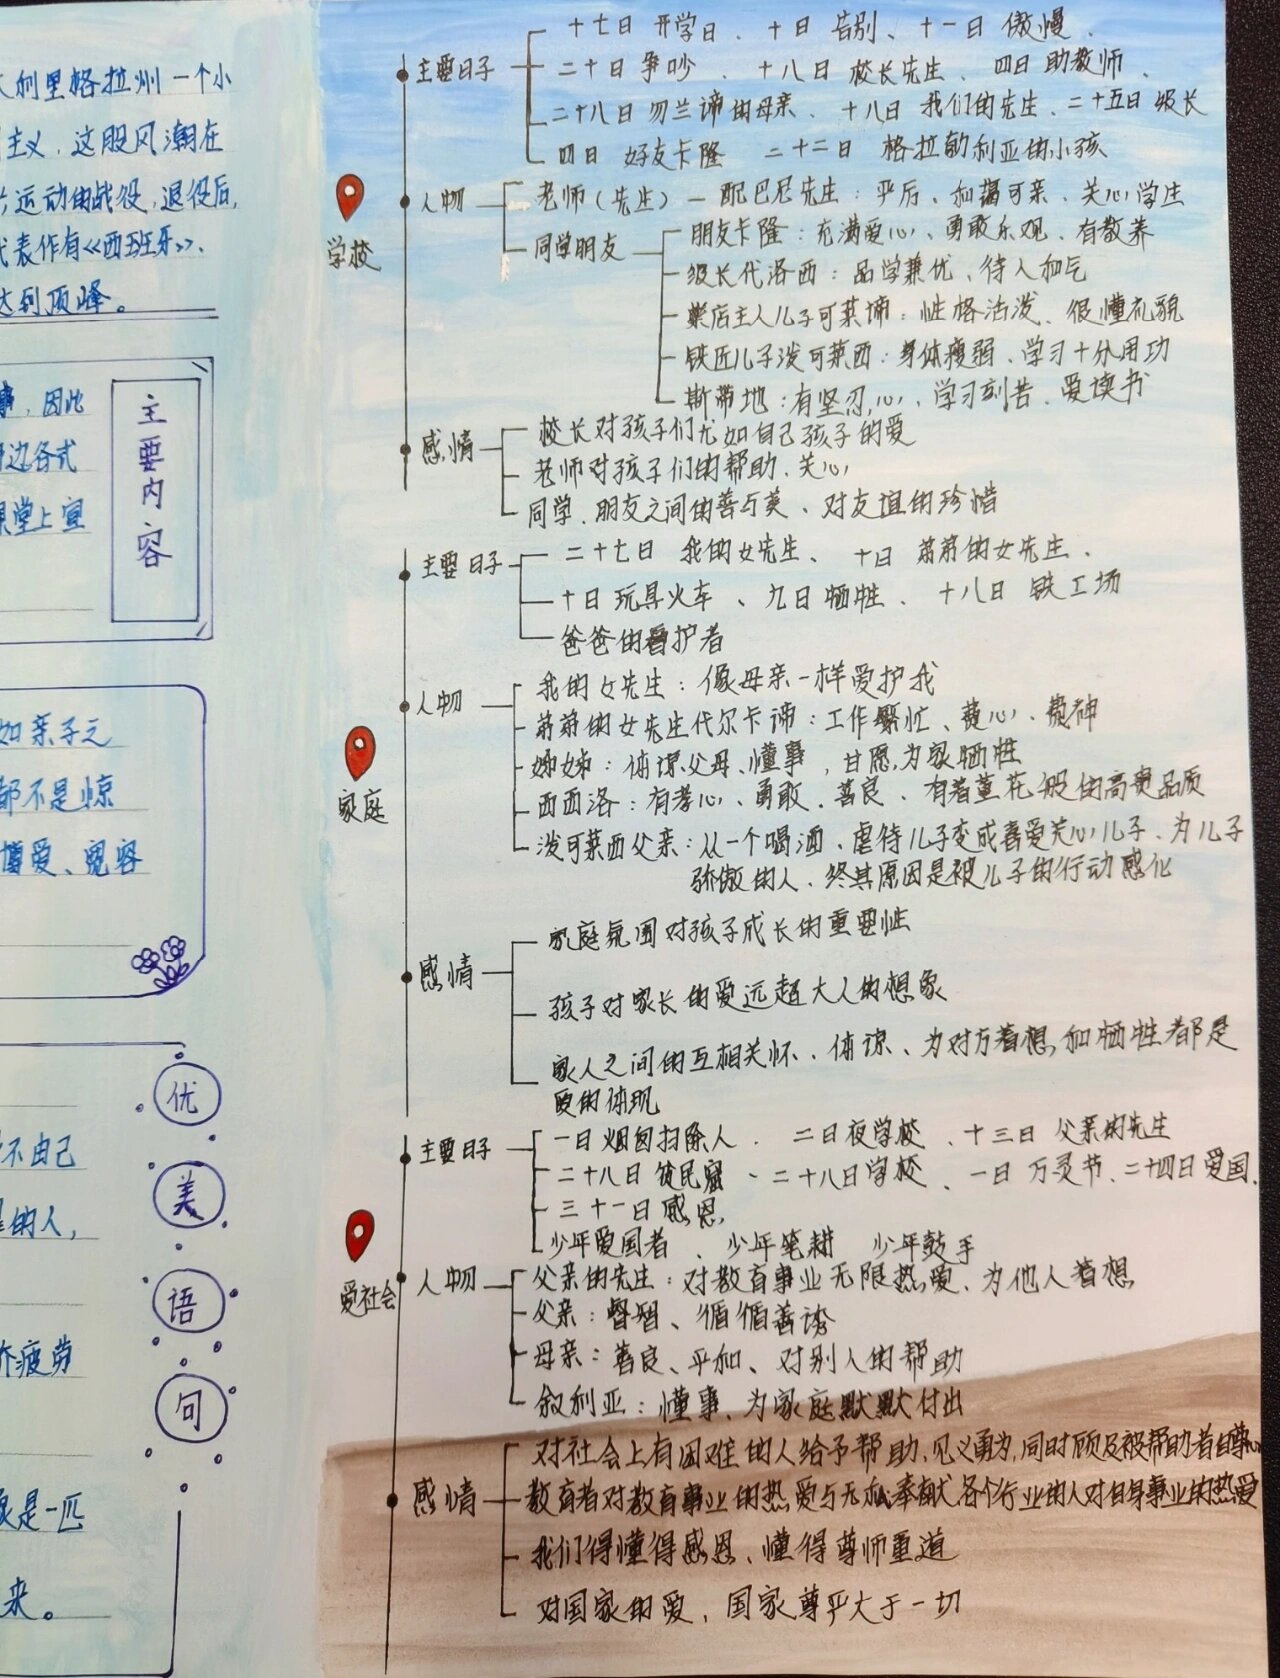 利里格拉州一个小
主义，这股风潮在
运动的战役，退役后，
代表作有《西班牙》、
达到顶峰。
事，因此
边各式
课堂上宣
主要内容
如亲子之
都不是惊
博爱、宽容
不由己
的人，
疲劳
是一匹
来。
优美语句
学校
主要日子
十七日 开学日、十日 告别、十一日 傲慢、
二十日 争吵、十八日 校长先生、四日 助教师、
二十八日 勿兰谛的母亲、十八日 我们的先生、二十五日 级长
四日 好友卡隆 二十二日 格拉勃利亚的小孩
人物
老师（先生）— 配巴尼先生：严厉、和蔼可亲、关心学生
同学朋友
朋友卡隆：充满爱心、勇敢乐观、有教养
级长代洛西：品学兼优、待人和气
柴店主人儿子可莱谛：性格活泼、很懂礼貌
铁匠儿子泼可莱西：身体瘦弱、学习十分用功
斯蒂地：有坚忍心、学习刻苦、爱读书
感情
校长对孩子们尤如自己孩子的爱
老师对孩子们的帮助、关心
同学、朋友之间的善与美、对友谊的珍惜
家庭
主要日子
二十七日 我的女先生、十日 弟弟的女先生、
十日 玩具火车、九日 牺牲、十八日 铁工场
爸爸的看护者
人物
我的女先生：像母亲一样爱护我
弟弟的女先生代尔卡谛：工作繁忙、费心、费神
姊姊：体谅父母、懂事，甘愿为家牺牲
西西洛：有孝心、勇敢、善良、有着堇花般的高贵品质
泼可莱西父亲：从一个喝酒、虐待儿子变成喜爱关心儿子、为儿子
骄傲的人、终其原因是被儿子的行动感化
感情
家庭氛围对孩子成长的重要性
孩子对家长的爱远超大人的想象
家人之间的互相关怀、体谅、为对方着想和牺牲都是
爱的体现
爱社会
主要日子
一日 烟囱扫除人、二日 夜学校、十三日 父亲的先生
二十八日 贫民窟、二十八日 学校、一日 万灵节、二十四日 爱国、
三十一日 感恩，
少年爱国者、少年笔耕 少年鼓手
人物
父亲的先生：对教育事业无限热爱、为他人着想
父亲：睿智、循循善诱
母亲：善良、平和、对别人的帮助
叙利亚：懂事、为家庭默默付出
感情
对社会上有困难的人给予帮助，见义勇为，同时顾及被帮助者自尊心
教育者对教育事业的热爱与无私奉献 各个行业的人对自身事业的热爱
我们得懂得感恩、懂得尊师重道
对国家的爱，国家尊严大于一切